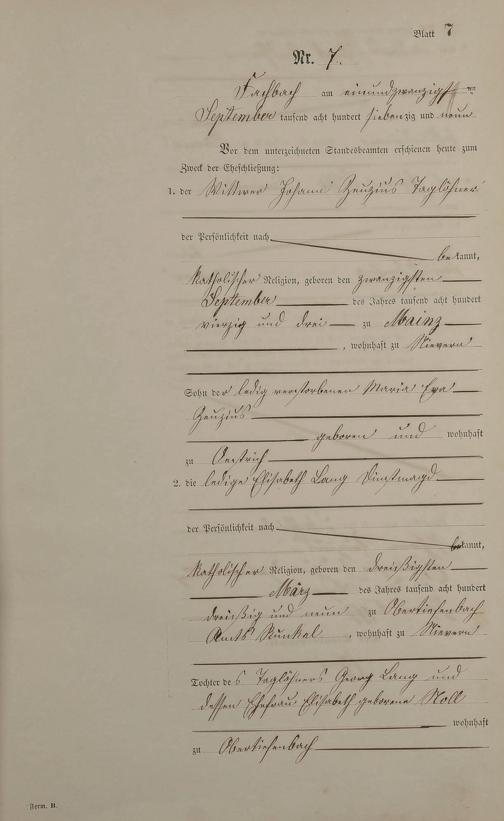 Blatt 7
Nr. 7.
Fachbach am einundzwanzigsten
September tausend acht hundert siebenzig und neun
Vor dem unterzeichneten Standesbeamten erschienen heute zum
Zweck der Eheschließung:
1. der Wittwer Johann Zeuzius Taglöhner
der Persönlichkeit nach
bekannt,
katholischer Religion, geboren den zwanzigsten
September des Jahres tausend acht hundert
vierzig und drei zu Mainz
, wohnhaft zu Nievern
Sohn der ledig verstorbenen Maria Eva
Zeuzius
geboren und wohnhaft
zu Oestrich
2. die ledige Elisabeth Lang Dienstmagd
der Persönlichkeit nach
bekannt,
katholischer Religion, geboren den dreißigsten
März des Jahres tausend acht hundert
dreißig und neun zu Obertiefenbach
Amts Runkel , wohnhaft zu Nievern
Tochter des Taglöhners Georg Lang und
dessen Ehefrau Elisabeth geborene Noll
wohnhaft
zu Obertiefenbach
Form. B.